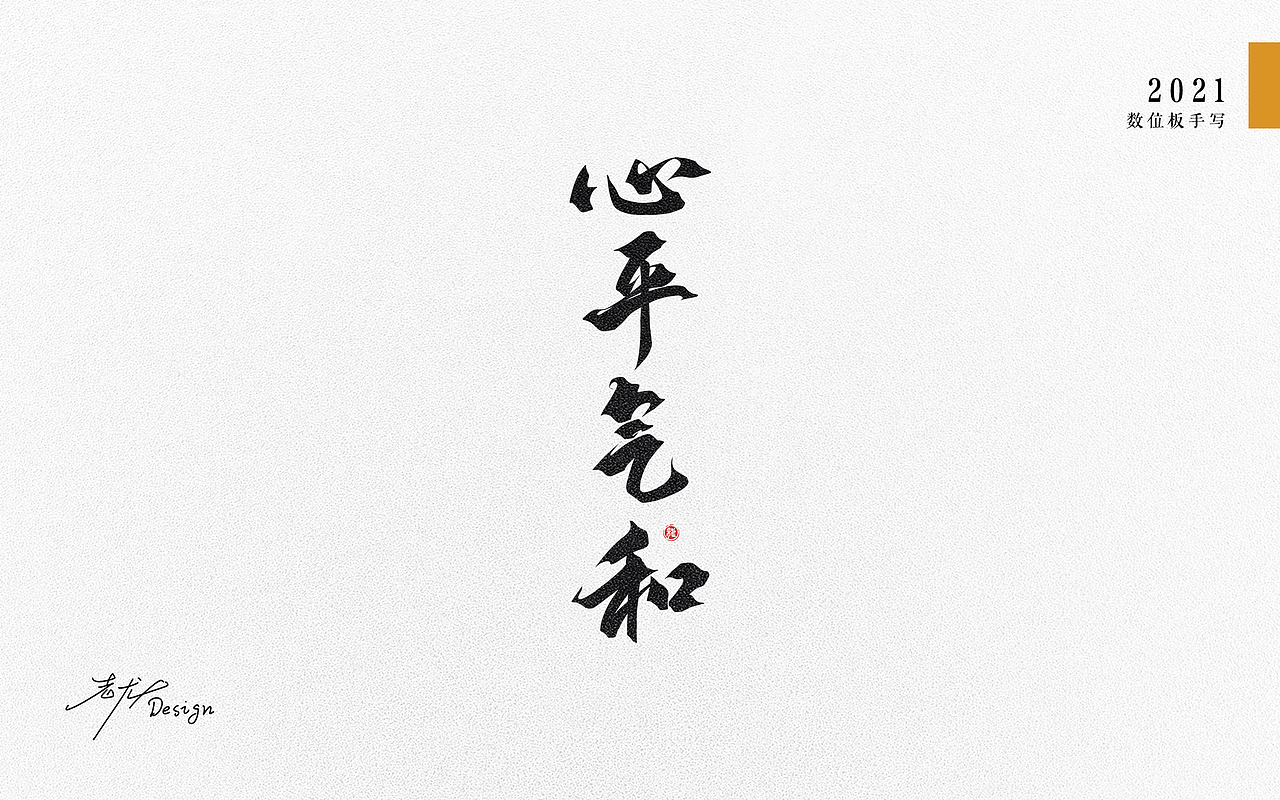 2021
数位板手写
心
平
气
和
Design